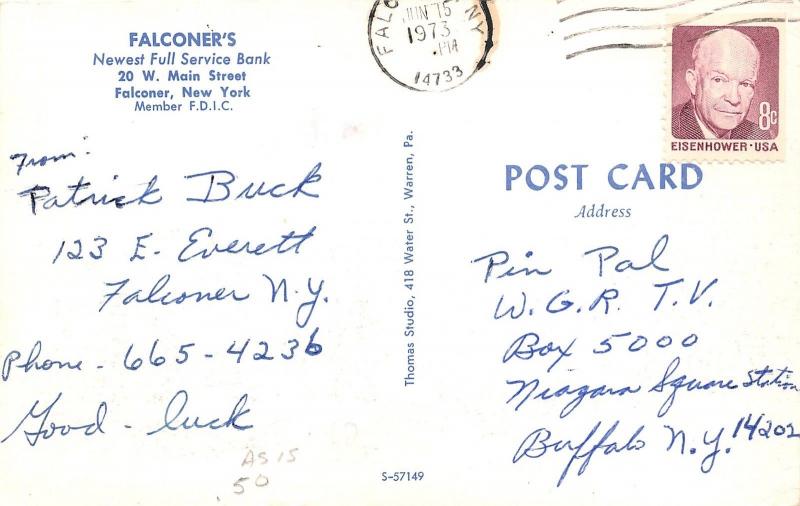 FALCONER'S
Newest Full Service Bank
20 W. Main Street
Falconer, New York
Member F.D.I.C.
FALCO NY
JUN 15
1973
PM
14733
8c
EISENHOWER·USA
From:
Patrick Buck
123 E. Everett
Falconer N.Y.
Phone - 665-4236
Good - luck
AS IS
.50
Thomas Studio, 418 Water St., Warren, Pa.
S-57149
POST CARD
Address
Pin Pal
W.G.R. T.V.
Box 5000
Niagara Square Station
Buffalo N.Y. 14202